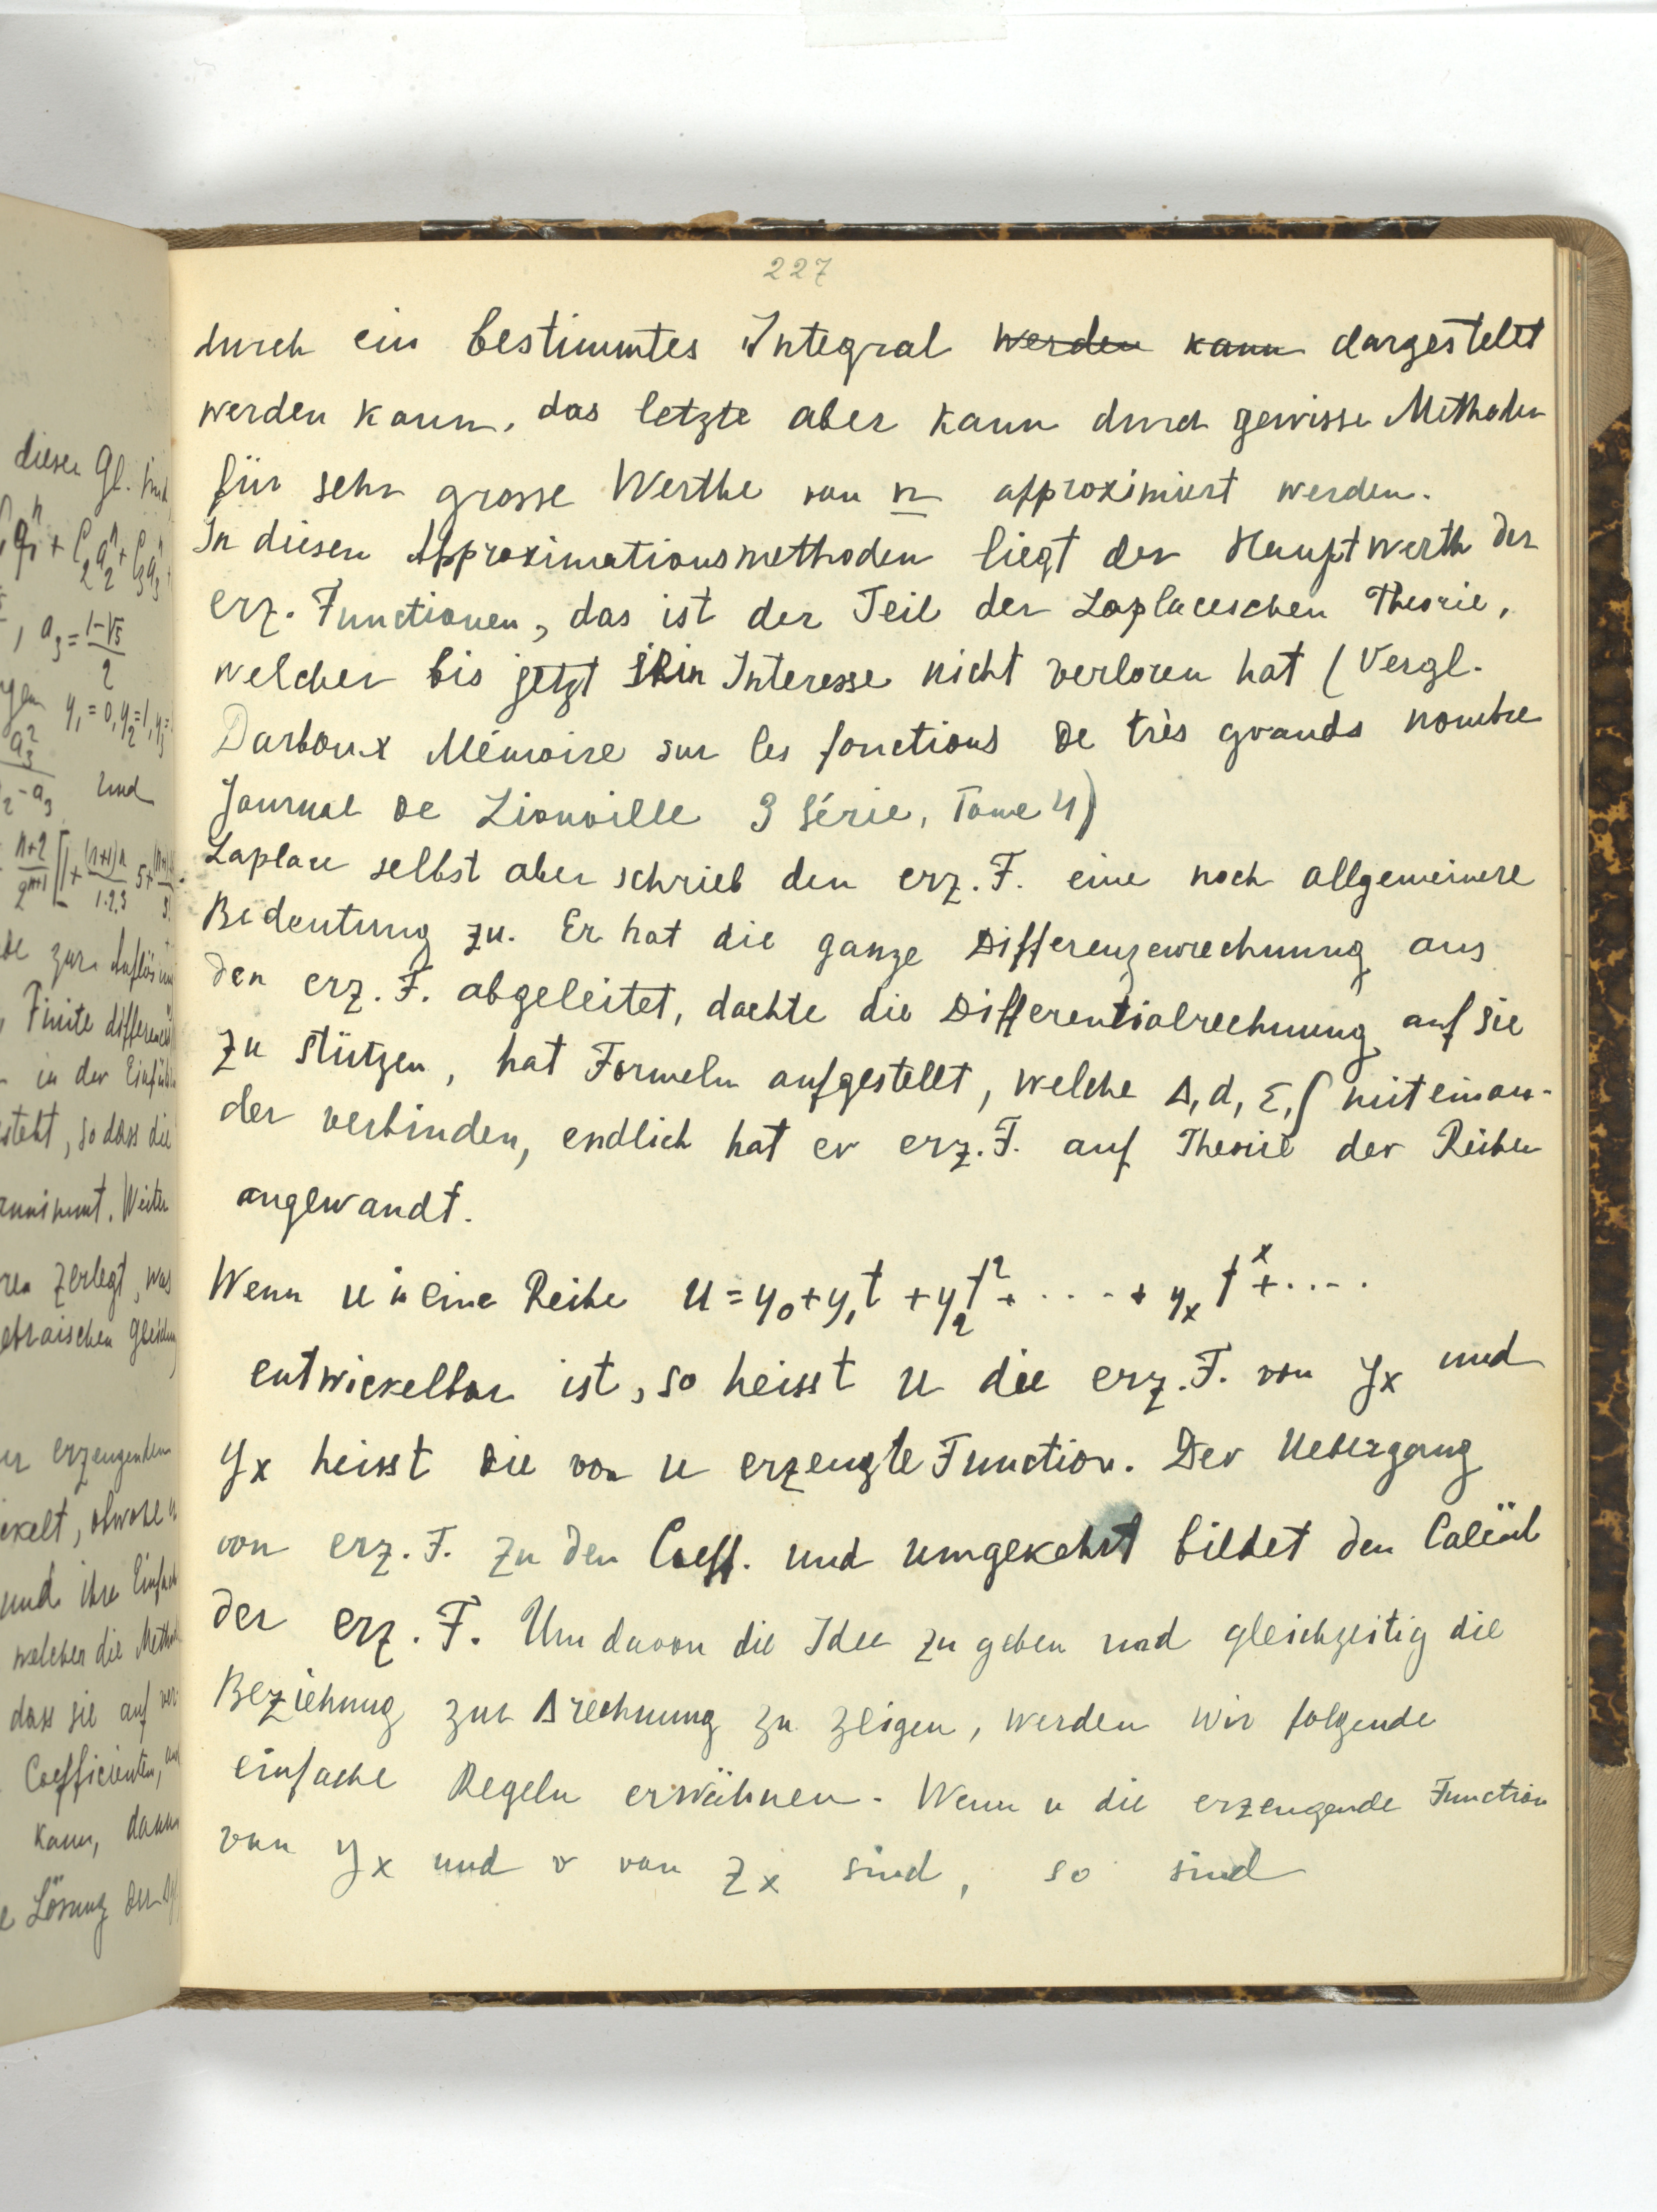 227
durch ein bestimmtes Integral werden kann dargestellt
werden kann, das letzte aber kann durch gewisse Methoden
für sehr grosse Werthe von n approximiert werden.
In diesen Approximationsmethoden liegt der Hauptwerth der
erz. Functionen, das ist der Teil der Laplaceschen Theorie,
welcher bis jetzt sein Interesse nicht verloren hat (Vergl.
Darboux Mémoire sur les fonctions de très grands nombre
Journal de Liouville 3 Série, Tome 4)
Laplace selbst aber schrieb den erz. F. eine noch allgemeinere
Bedeutung zu. Er hat die ganze Differenzenrechnung aus
den erz. F. abgeleitet, dachte die Differentialrechnung auf sie
zu stützen, hat Formeln aufgestellt, welche Δ, d, Σ, ∫ miteinan-
der verbinden, endlich hat er erz. F. auf Theorie der Reihen
angewandt.
Wenn u in eine Reihe u = y₀ + y₁t + y₂t² + · · · · + yₓ tˣ + · · · ·
entwickelbar ist, so heisst u die erz. F. von yₓ und
yₓ heisst die von u erzeugte Function. Der Uebergang
von erz. F. zu den Coeff. und umgekehrt bildet den Calcül
der erz. F. Um davon die Idee zu geben und gleichzeitig die
Beziehung zur Δrechnung zu zeigen, werden wir folgende
einfache Regeln erwähnen. Wenn u die erzeugende Function
von yₓ und v von zₓ sind, so sind
dieser Gl. sind
C₁a₁ⁿ + C₂a₂ⁿ + C₃a₃ⁿ +
, a₃ = (1-√5)/2
y₁ = 0, y₂ = 1, y₃ =
und
zur Auflösung
Finite differences
in der Einführ
steht, so dass die
annimmt. Weiter
zerlegt, was
ebraischen Gleichung
er erzeugenden
ickelt, obwohl
und ihre Einfach
welcher die Meth
dass sie auf ver-
Coefficienten,
kann, dann
Lösung der